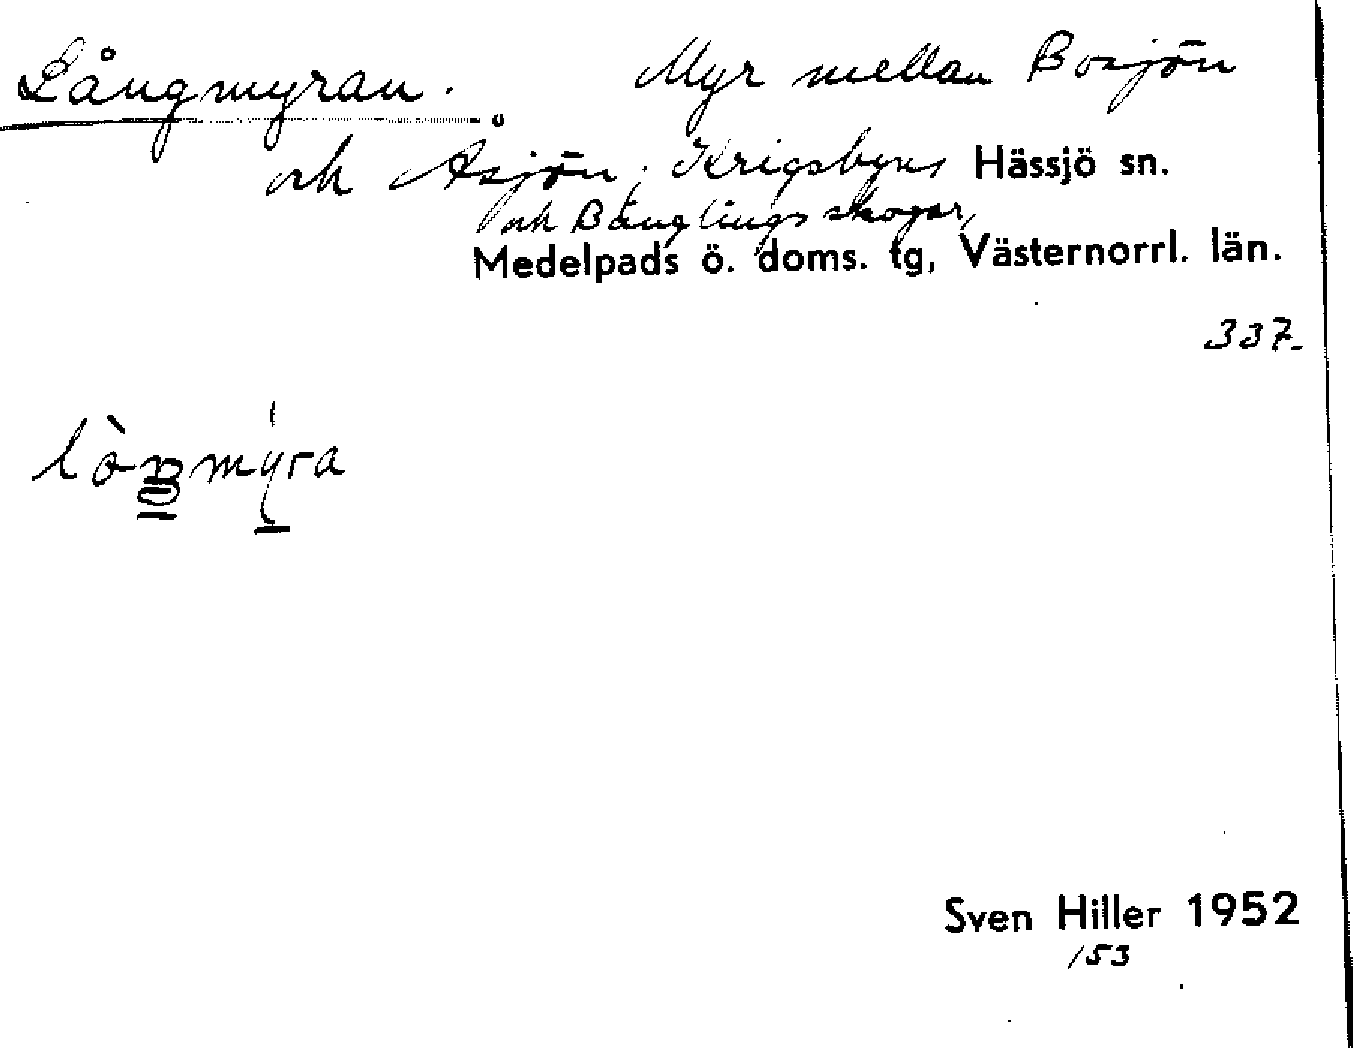 Långmyran. Myr mellan Bosjön
och Åsjön, Krigsbyns Hässjö sn.
och Bänglings skogar,
Medelpads ö. doms. tg, Västernorrl. län.
337
Sven Hiller 1952
/53